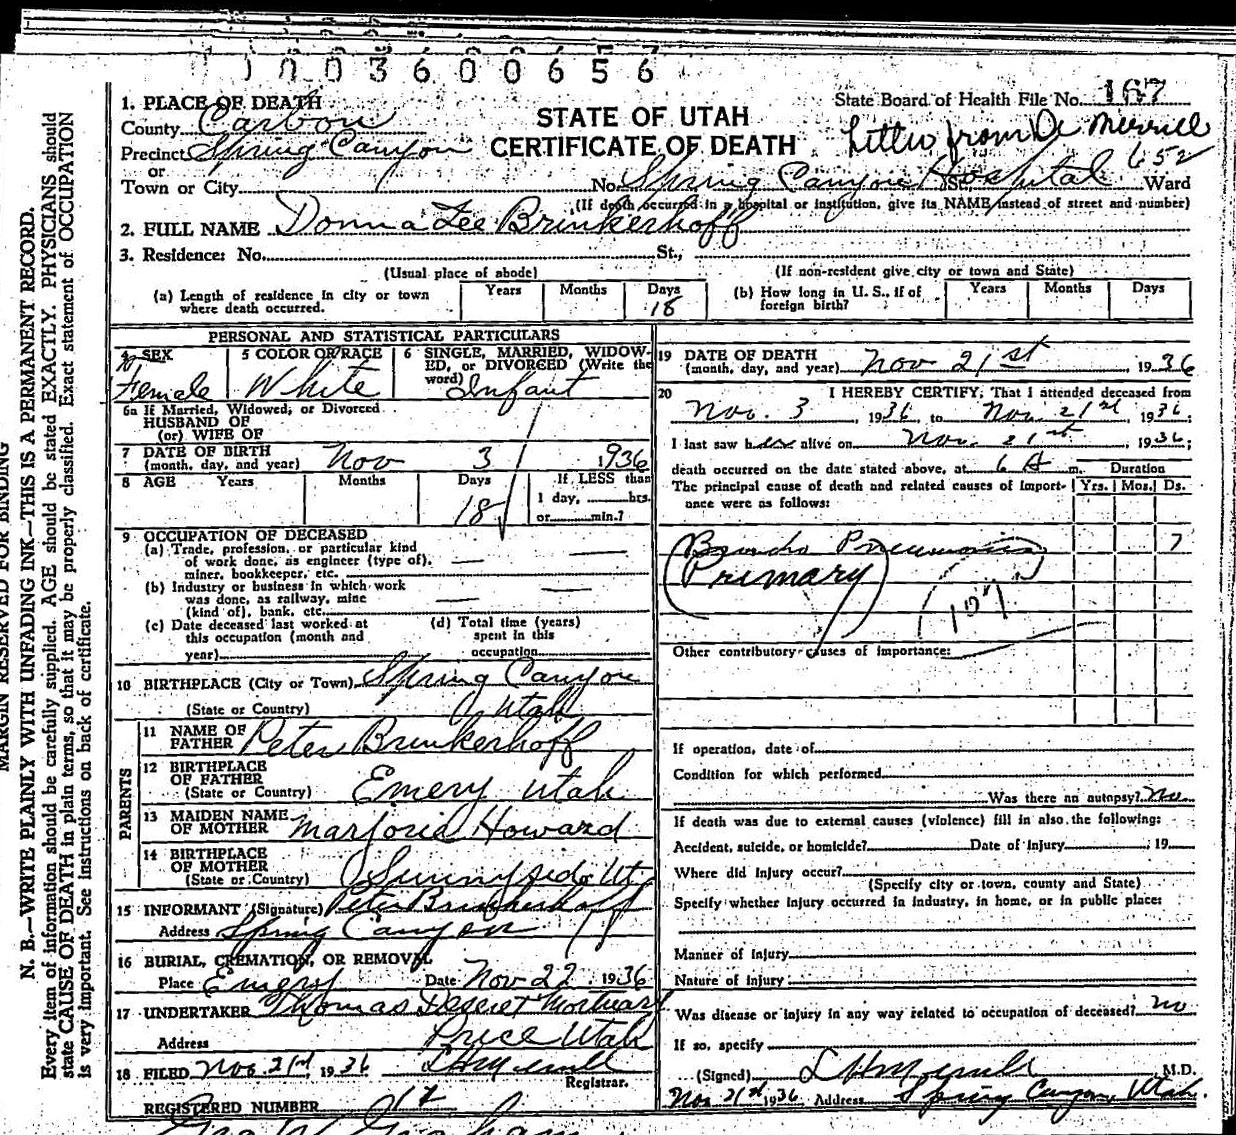 003600656
1. PLACE OF DEATH
County Carbon
Precinct Spring Canyon
or
Town or City
STATE OF UTAH
CERTIFICATE OF DEATH
State Board of Health File No. 167
Letter from Dr Merrill
652
No. Spring Canyon Hospital St., Ward
(If death occurred in a hospital or institution, give its NAME instead of street and number)
2. FULL NAME Donna Lee Brinkerhoff
3. Residence: No. St.,
(Usual place of abode)
(If non-resident give city or town and State)
(a) Length of residence in city or town where death occurred. Years Months Days 18
(b) How long in U. S., if of foreign birth? Years Months Days
PERSONAL AND STATISTICAL PARTICULARS
4 SEX Female
5 COLOR OR RACE White
6 SINGLE, MARRIED, WIDOWED, or DIVORCED (Write the word) Infant
6a If Married, Widowed, or Divorced
HUSBAND OF
(or) WIFE OF
7 DATE OF BIRTH
(month, day, and year) Nov 3 1936
8 AGE Years Months Days If LESS than
18 1 day, hrs.
or min.?
9 OCCUPATION OF DECEASED
(a) Trade, profession, or particular kind
of work done, as engineer (type of),
miner, bookkeeper, etc.
(b) Industry or business in which work
was done, as railway, mine
(kind of), bank, etc.
(c) Date deceased last worked at
this occupation (month and
year)
(d) Total time (years)
spent in this
occupation
10 BIRTHPLACE (City or Town) Spring Canyon
(State or Country) Utah
PARENTS
11 NAME OF
FATHER Peter Brinkerhoff
12 BIRTHPLACE
OF FATHER
(State or Country) Emery Utah
13 MAIDEN NAME
OF MOTHER Marjorie Howard
14 BIRTHPLACE
OF MOTHER
(State or Country) Sunnyside Ut.
15 INFORMANT (Signature) Peter Brinkerhoff
Address Spring Canyon
16 BURIAL, CREMATION, OR REMOVAL
Place Emery Date Nov 22 1936
17 UNDERTAKER Thomas Deseret Mortuary
Address Price Utah
18 FILED Nov. 21st, 1936 L H Merrill
Registrar.
REGISTERED NUMBER 17
19 DATE OF DEATH
(month, day, and year) Nov 21st, 1936
20 I HEREBY CERTIFY, That I attended deceased from
Nov. 3, 1936, to Nov. 21st 1936;
I last saw her alive on Nov. 21st, 1936;
death occurred on the date stated above, at 6 A m. Duration
The principal cause of death and related causes of importance were as follows: Yrs. Mos. Ds.
Broncho Pneumonia 7
Primary
(107)
Other contributory causes of importance:
If operation, date of
Condition for which performed
Was there an autopsy? no
If death was due to external causes (violence) fill in also the following:
Accident, suicide, or homicide? Date of injury , 19
Where did injury occur?
(Specify city or town, county and State)
Specify whether injury occurred in industry, in home, or in public place:
Manner of Injury
Nature of injury
Was disease or injury in any way related to occupation of deceased? no
If so, specify
(Signed) L H Merrill M.D.
Nov 21st 1936 Address Spring Canyon, Utah.
MARGIN RESERVED FOR BINDING
N. B.—WRITE PLAINLY WITH UNFADING INK—THIS IS A PERMANENT RECORD.
Every item of information should be carefully supplied. AGE should be stated EXACTLY. PHYSICIANS should
state CAUSE OF DEATH in plain terms, so that it may be properly classified. Exact statement of OCCUPATION
is very important. See instructions on back of certificate.